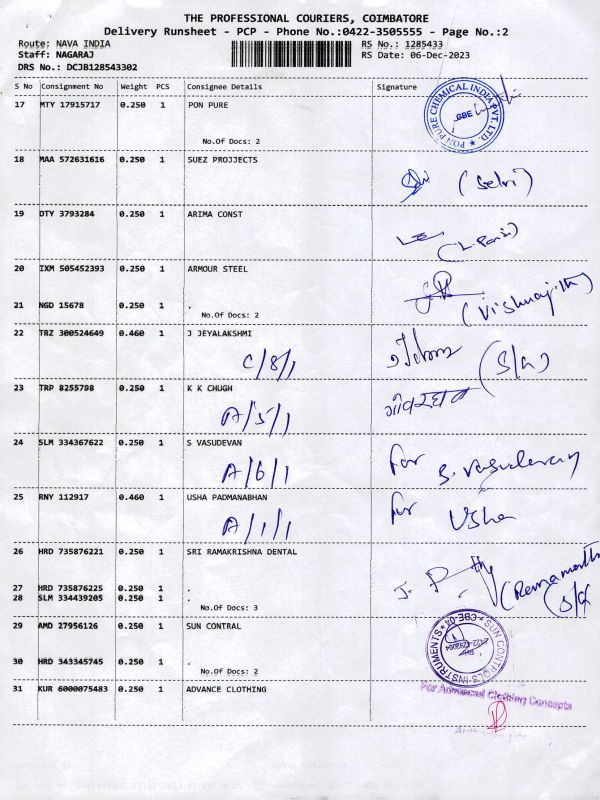 THE PROFESSIONAL COURIERS, COIMBATORE
Delivery Runsheet - PCP - Phone No.:0422-3505555 - Page No.:2
Route: NAVA INDIA RS No.: 1285433
Staff: NAGARAJ RS Date: 06-Dec-2023
DRS No.: DCJB128543302
S No Consignment No Weight PCS Consignee Details Signature
17 MTY 17915717 0.250 1 PON PURE
PON PURE CHEMICAL INDIA PVT. LTD. CBE
No.Of Docs: 2
18 MAA 572631616 0.250 1 SUEZ PROJJECTS
(Selvi)
19 OTY 3793284 0.250 1 ARIMA CONST
20 IXM 505452393 0.250 1 ARMOUR STEEL
(Vishnajith)
21 NGD 15678 0.250 1 .
No.Of Docs: 2
22 TRZ 300524649 0.460 1 J JEYALAKSHMI
C/8/1 (S/G)
23 TRP 8255798 0.250 1 K K CHUGH
A/5/1
24 SLM 334367622 0.250 1 S VASUDEVAN
A/6/1 For S. Vasudevan
25 RNY 112917 0.460 1 USHA PADMANABHAN
A/1/1 For Usha
26 HRD 735876221 0.250 1 SRI RAMAKRISHNA DENTAL
27 HRD 735876225 0.250 1 .
28 SLM 334439205 0.250 1 .
No.Of Docs: 3
29 AMD 27956126 0.250 1 SUN CONTRAL
SUN CONTROLS INSTRUMENTS CBE-04
30 HRD 343345745 0.250 1 .
No.Of Docs: 2
31 KUR 6000075483 0.250 1 ADVANCE CLOTHING
For Advanced Clothing Concepts